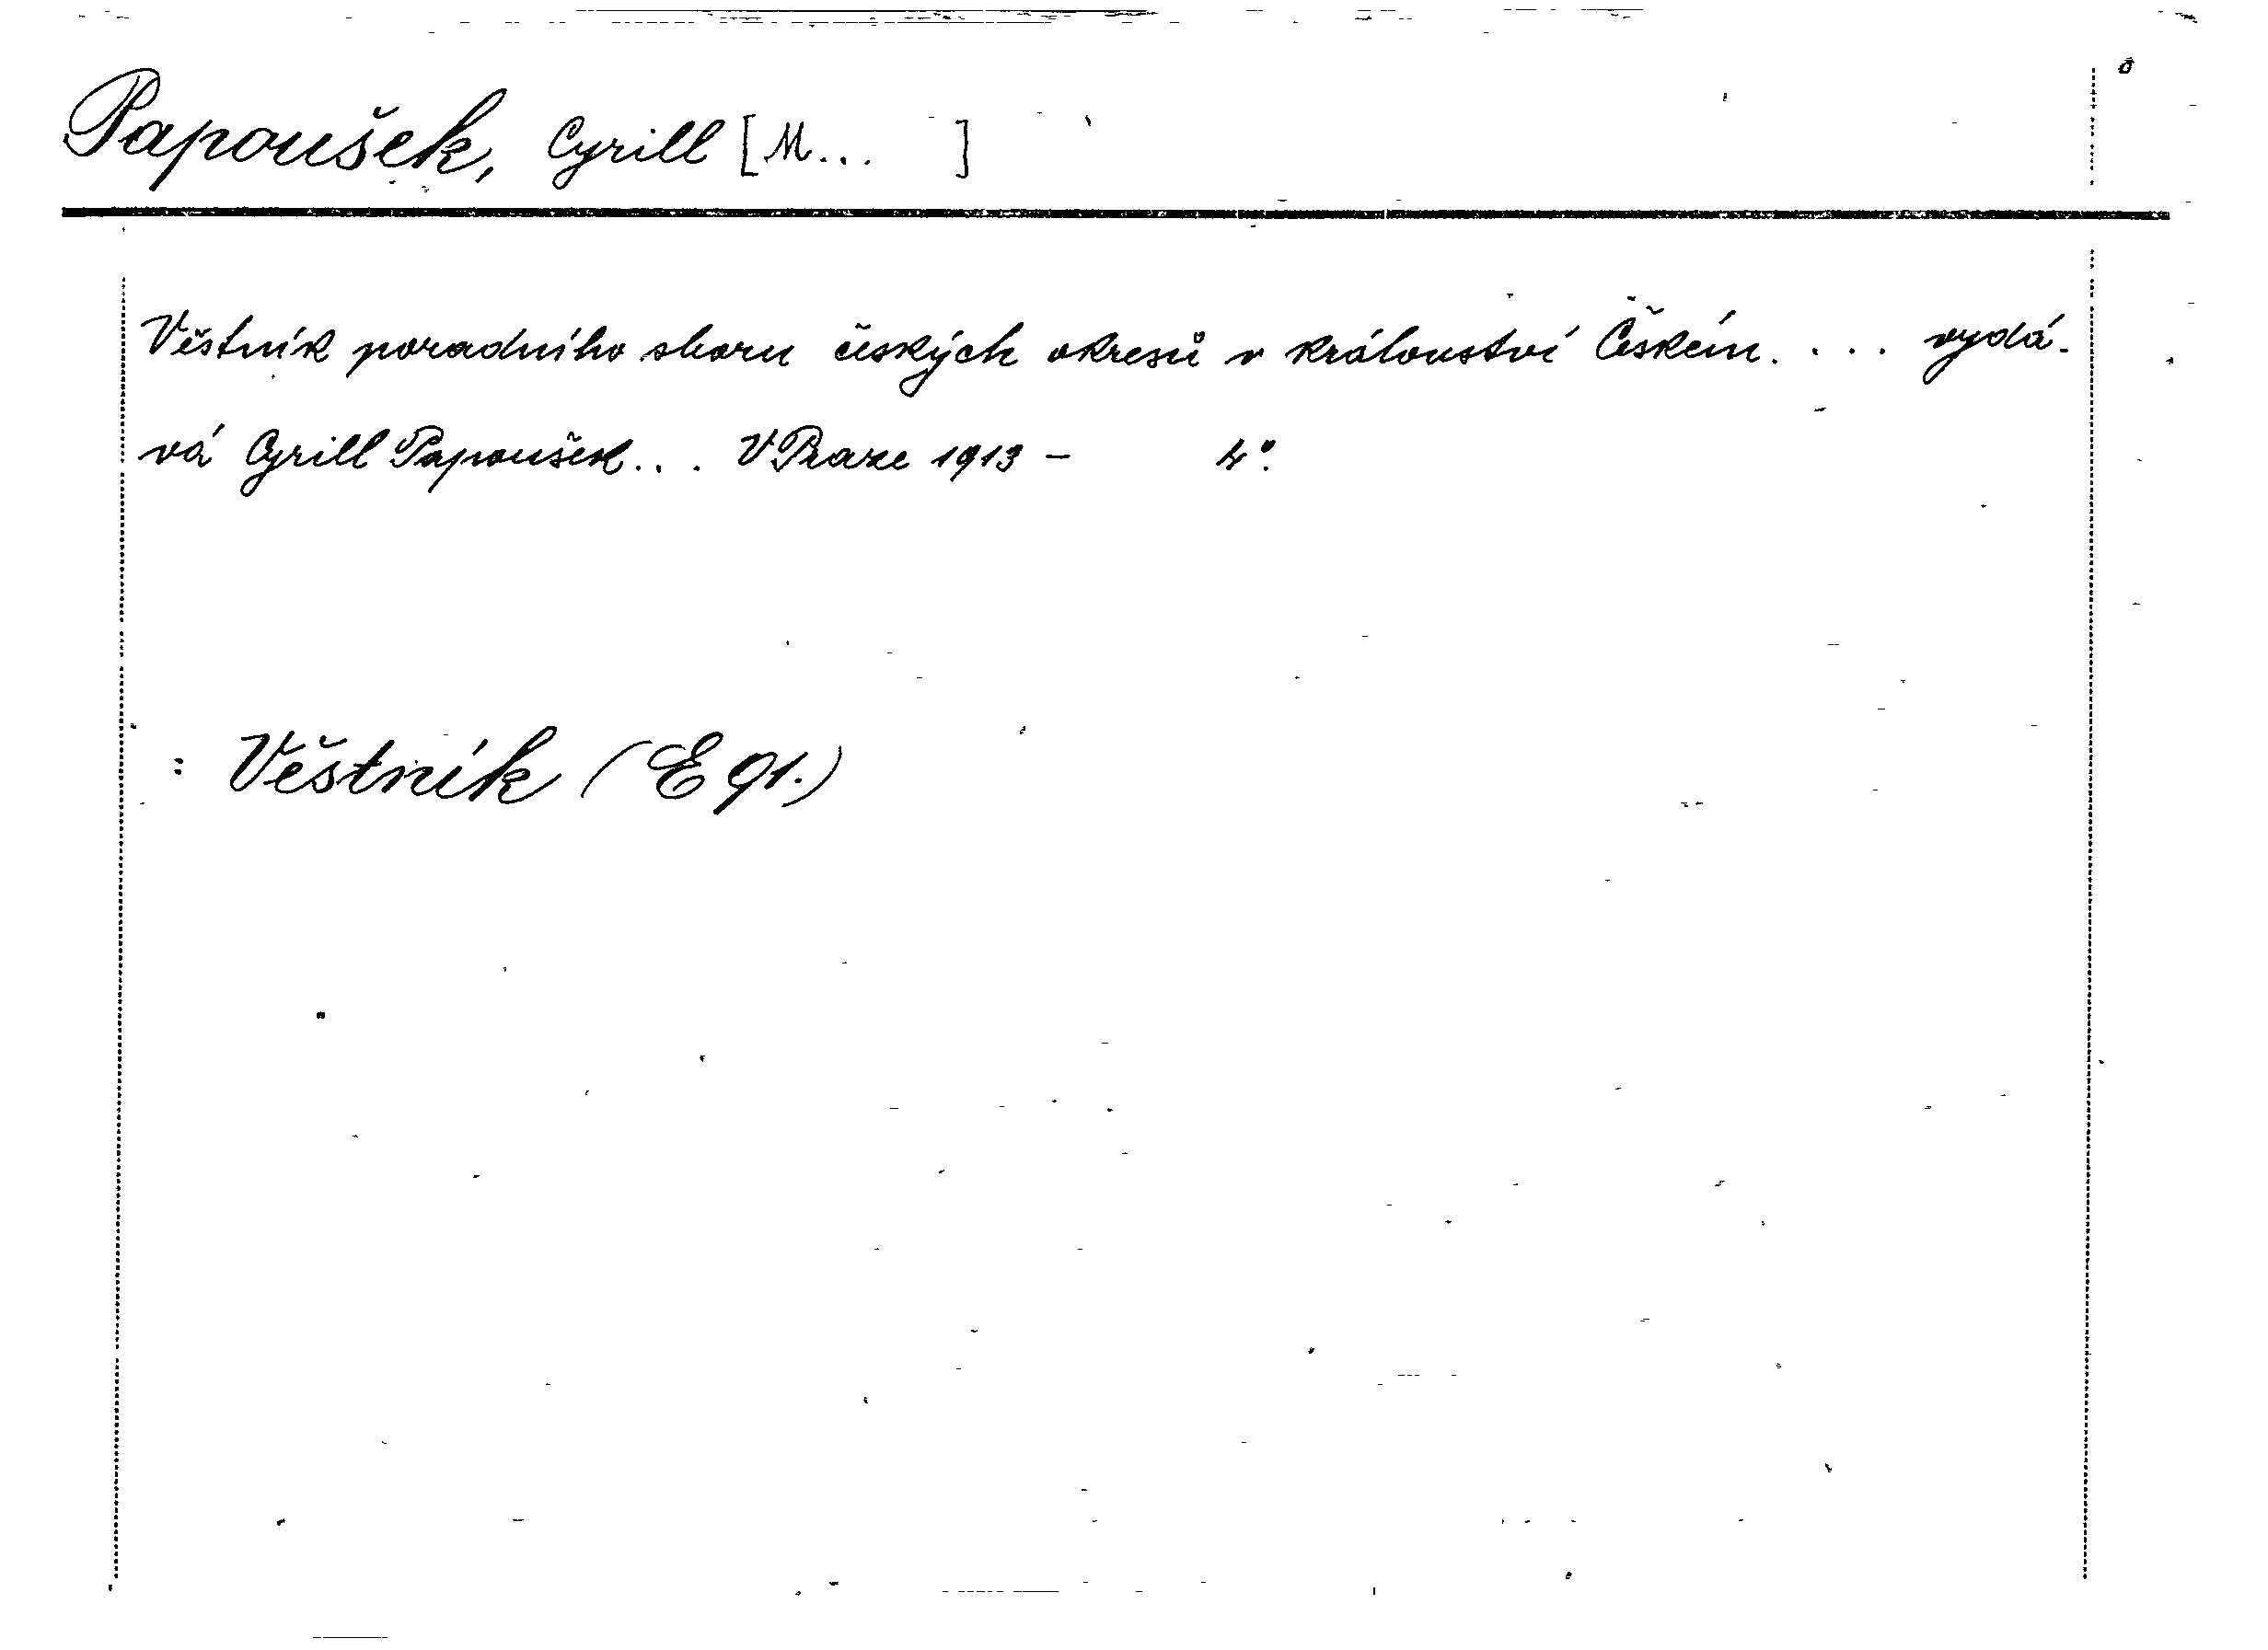 Papoušek, Cyrill [M... ]
Věstník poradního sboru českých okresů v království Českém. ... vydá-
vá Cyrill Papoušek... V Praze 1913 - 4°.
: Věstník (E 91.)